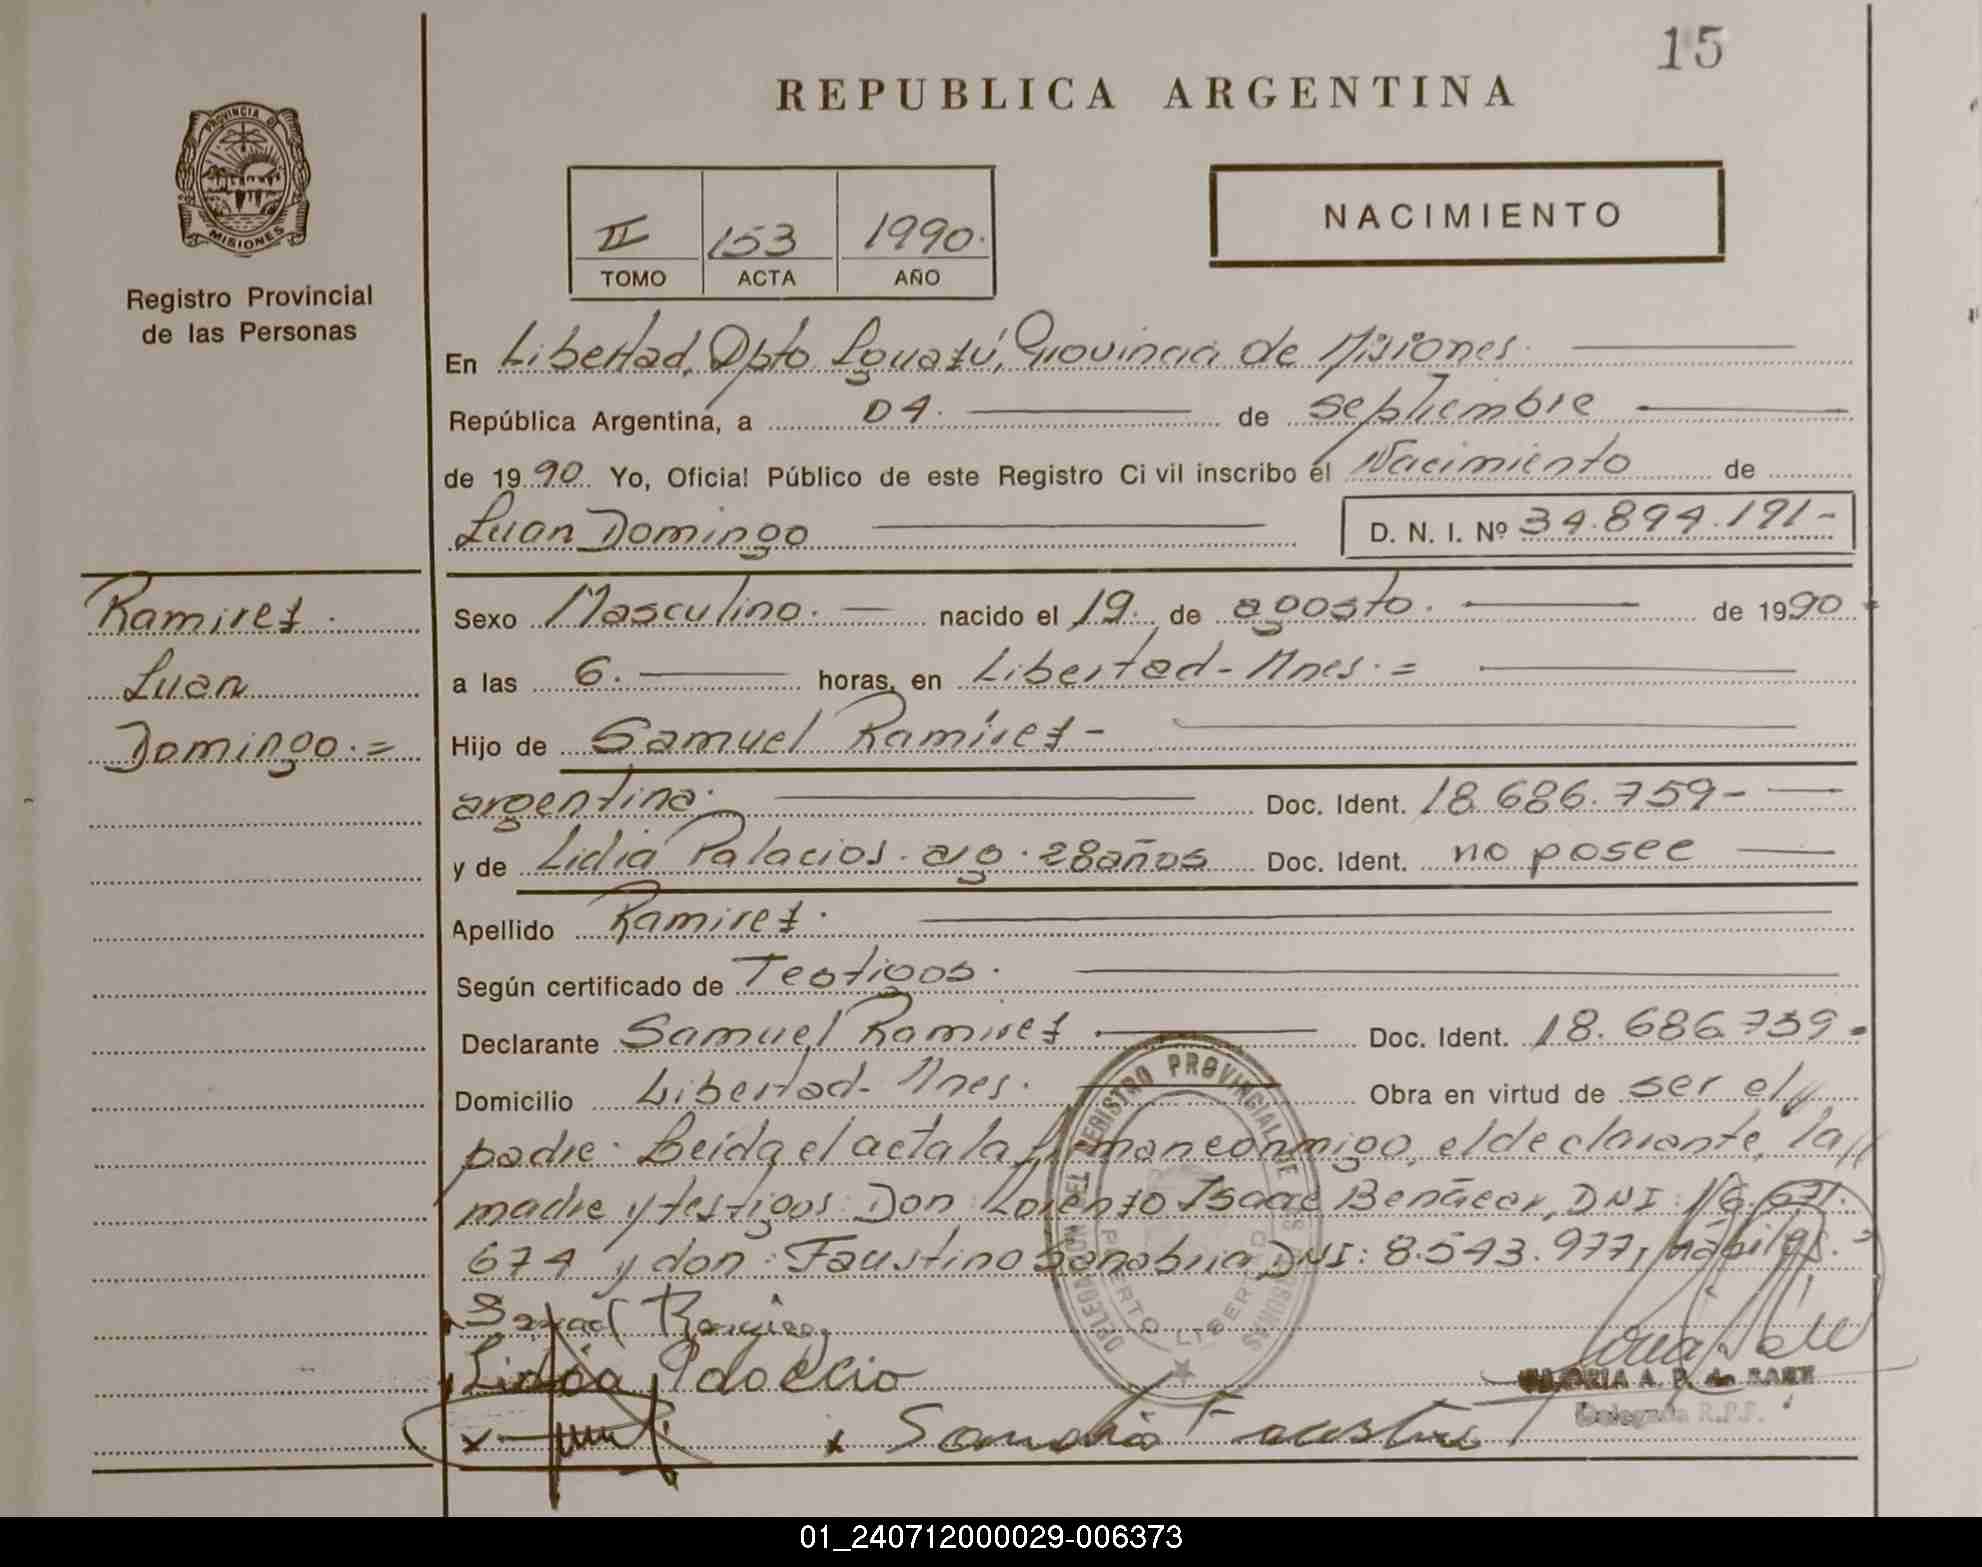 15
REPUBLICA ARGENTINA
PROVINCIA DE
MISIONES
Registro Provincial
de las Personas
II 153 1990.
TOMO ACTA AÑO
NACIMIENTO
En Libertad, Dpto Iguazú, Provincia de Misiones.
República Argentina, a 04. de septiembre
de 1990 Yo, Oficial Público de este Registro Ci vil inscribo el Nacimiento de
Luan Domingo D. N. I. Nº 34.894.191-
Ramirez.
Luan
Domingo.=
Sexo Masculino. nacido el 19. de agosto. de 1990
a las 6. horas, en Libertad-Mnes.=
Hijo de Samuel Ramírez-
argentina. Doc. Ident. 18.686.759-
y de Lidia Palacios. arg. 28 años Doc. Ident. no posee
Apellido Ramirez.
Según certificado de Testigos.
Declarante Samuel Ramirez Doc. Ident. 18.686.759-
Domicilio Libertad-Mnes. Obra en virtud de ser el
padre. Leida el acta la firman conmigo, el declarante, la
madre y testigos: Don Lorenzo Isaac DNI: 16.
674 y don: Faustino Sanabria, DNI: 8.543.977, hábiles.=
REGISTRO PROVINCIAL DE
PUERTO LIBERTAD
A. P. de
Delegada R.P.P.
01_240712000029-006373